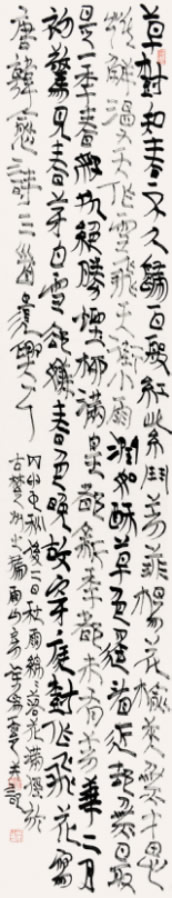 草樹知春不久歸百般紅紫鬥芳菲楊花榆莢無才思
惟解漫天作雪飛天街小雨潤如酥草色遙看近卻無最
是一年春好處絕勝煙柳滿皇都新年都未有芳華二月
初驚見芽白雪卻嫌春色晚故穿庭樹作飛花寫
唐韓愈詩三
秋後二日秋雨綿落花滿於
古楚州山房